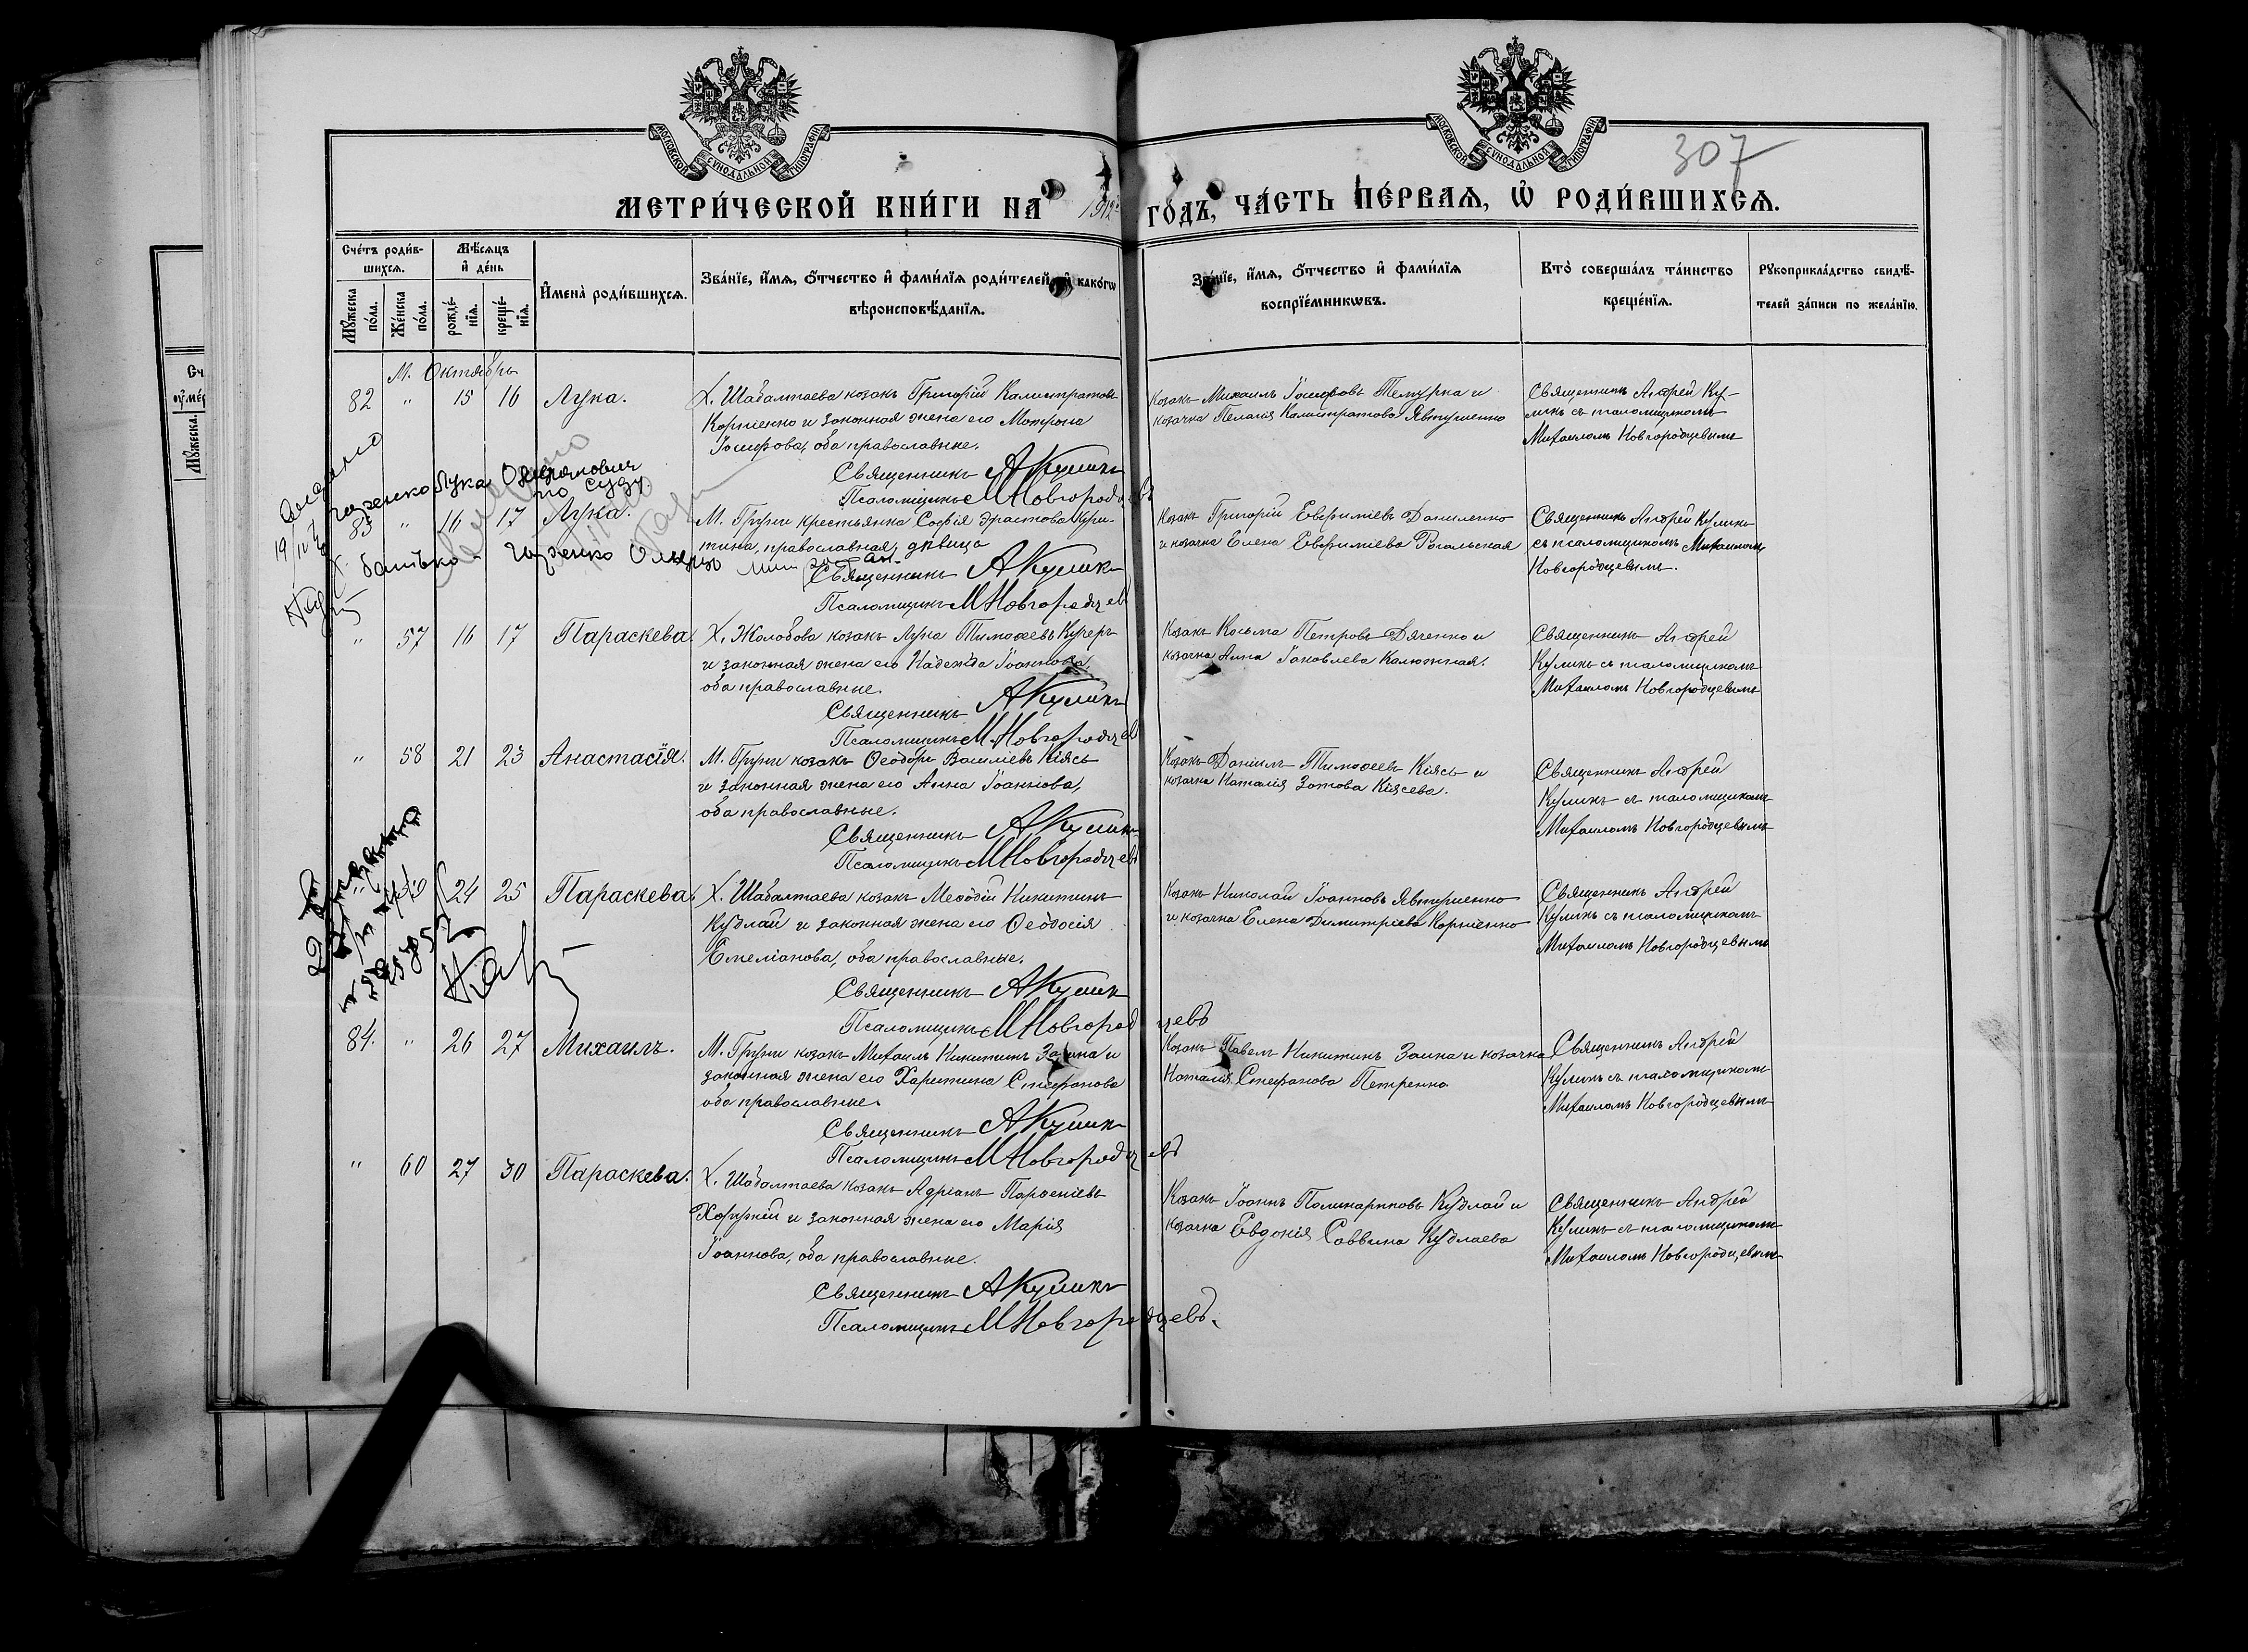 МОСКОВСКОЙ СѴНОДАЛЬНОЙ ТИПОГРАФІИ
МОСКОВСКОЙ СѴНОДАЛЬНОЙ ТИПОГРАФІИ
307
МЕТРИ́ЧЕСКОЙ КНИ́ГИ НА 1912 ГО́ДЪ, ЧА́СТЬ ПЕ́РВАѦ, Ѡ҆ РОДИ́ВШИХСѦ.
Сче́тъ роди́в-
шихсѧ.
Мꙋжеска по́ла.
Же́нска по́ла.
Мѣ́сѧцъ
и҆ де́нь
рожде́-
нїѧ.
креще́-
нїѧ.
И҆мена̀ роди́вшихсѧ.
Зва́нїе, и҆́мѧ, ѻ҆́тчество и҆ фами́лїѧ роди́телей, и҆ како́гѡ
вѣроисповѣ́данїѧ.
Зва́нїе, и҆́мѧ, ѻ҆́тчество и҆ фами́лїѧ
воспрїе́мникѡвъ.
Кто̀ соверша́лъ та́инство
креще́нїѧ.
Рꙋкоприкла́дство свидѣ́-
телей за́писи по жела́нїю.
М. Октябрь
82 " 15 16 Лука.
Х. Шабалтаева козакъ Григорій Калистратовъ
Корніенко и законная жена его Матрона
Іосифова, оба православные.
Священникъ АКуликъ
Псаломщикъ МНовгородцевъ
Козакъ Михаилъ Іосифовъ Темурка и
козачка Пелагія Калистратова Явтушенко
Священникъ Андрей Ку-
ликъ съ псаломщикомъ
Михаиломъ Новгородцевымъ
Лука
по суду.
83 " 16 17 Лука.
М. Груни крестьянка Софія Эрастова
православная, дѣвица
батько
Священникъ АКуликъ
Псаломщикъ МНовгородцевъ
Козакъ Григорій Евфиміевъ Даниленко
и козачка Елена Евфиміева Рогальская
Священникъ Андрей Куликъ
съ псаломщикомъ Михаиломъ
Новгородцевымъ.
" 57 16 17 Параскева.
Х. Жолобова козакъ Лука Тимоѳеевъ Кучеръ
и законная жена его Надежда Іоаннова,
оба православные.
Священникъ АКуликъ
Псаломщикъ МНовгородцевъ
Козакъ Косьма Петровъ Дяченко и
козачка Анна Іаковлева Калюжная.
Священникъ Андрей
Куликъ съ псаломщикомъ
Михаиломъ Новгородцевымъ
" 58 21 23 Анастасія.
М. Груни козакъ Ѳеодоръ Василіевъ Кіясь
и законная жена его Анна Іоаннова,
оба православные.
Священникъ АКуликъ
Псаломщикъ МНовгородцевъ
Козакъ Даніилъ Тимоѳеевъ Кіясь и
козачка Наталія Зотова Кіясева.
Священникъ Андрей
Куликъ съ псаломщикомъ
Михаиломъ Новгородцевымъ
24 25 Параскева.
Х. Шабалтаева козакъ Меѳодій Никитинъ
Кудлай и законная жена его Ѳеодосія
Емеліанова, оба православные.
Священникъ АКуликъ
Псаломщикъ МНовгородцевъ
Козакъ Николай Іоанновъ Явтушенко
и козачка Елена Димитріева Корніенко
Священникъ Андрей
Куликъ съ псаломщикомъ
Михаиломъ Новгородцевымъ
84. " 26 27 Михаилъ.
М. Груни козакъ Михаилъ Никитинъ Заика и
законная жена его Харитина Стефанова
оба православные.
Священникъ АКуликъ
Псаломщикъ МНовгородцевъ
Козакъ Павелъ Никитинъ Заика и козачка
Наталія Стефанова Петренко
Священникъ Андрей
Куликъ съ псаломщикомъ
Михаиломъ Новгородцевымъ
" 60 27 30 Параскева.
Х. Шабалтаева козакъ Адріанъ Парѳеніевъ
Хоружій и законная жена его Марія
Іоаннова, оба православные.
Священникъ АКуликъ
Псаломщикъ МНовгородцевъ.
Козакъ Іоаннъ Поликарповъ Кудлай и
козачка Евдокія Саввина Кудлаева
Священникъ Андрей
Куликъ съ псаломщикомъ
Михаиломъ Новгородцевымъ